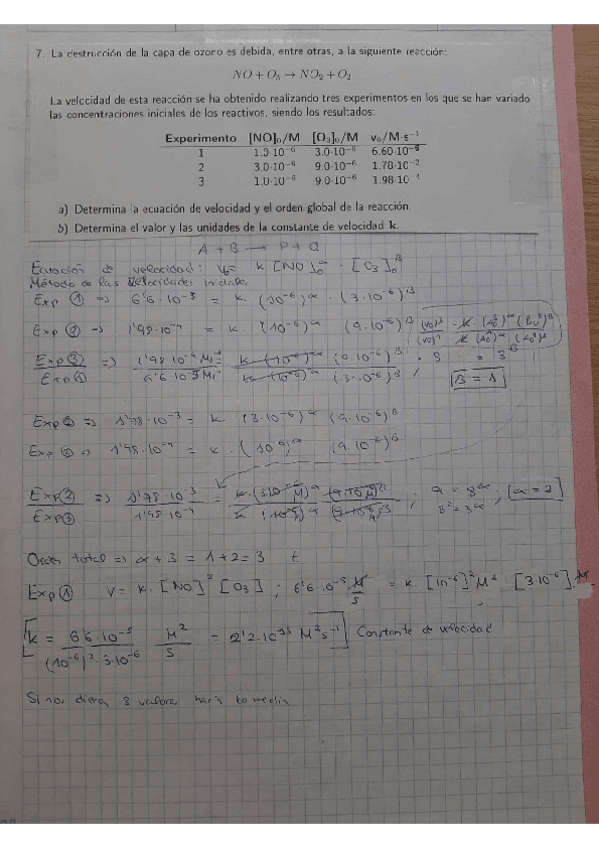 7. La destrucción de la capa de ozoro es debida, entre otras, a la siguiente reacción:
NO + O₃ → NO₂ + O₂
La velocidad de esta reacción se ha obtenido realizando tres experimentos en los que se han variado
las concentraciones iniciales de los reactivos, siendo los resultados:
Experimento [NO]₀/M [O₃]₀/M v₀/M·s⁻¹
1 1.0·10⁻⁶ 3.0·10⁻⁶ 6.60·10⁻⁵
2 3.0·10⁻⁶ 9.0·10⁻⁶ 1.78·10⁻³
3 1.0·10⁻⁶ 9.0·10⁻⁶ 1.98·10⁻⁴
a) Determina la ecuación de velocidad y el orden global de la reacción.
b) Determina el valor y las unidades de la constante de velocidad k.
A + B → P + Q
Ecuación de velocidad: v₀ = k [NO]₀^α · [O₃]₀^β
Método de las velocidades iniciales
Exp ① => 6'6·10⁻⁵ = k · (10⁻⁶)^α · (3·10⁻⁶)^β
Exp ③ -> 1'98·10⁻⁴ = k · (10⁻⁶)^α (9·10⁻⁶)^β
Exp ③ / Exp ① => 1'98·10⁻⁴ / 6'6·10⁻⁵ = k · (10⁻⁶)^α (9·10⁻⁶)^β / k · (10⁻⁶)^α (3·10⁻⁶)^β ; 3 = 3^β
β = 1
Exp ② => 1'78·10⁻³ = k · (3·10⁻⁶)^α (9·10⁻⁶)^β
Exp ③ => 1'98·10⁻⁴ = k · (10⁻⁶)^α (9·10⁻⁶)^β
Exp ② / Exp ③ => 1'78·10⁻³ / 1'98·10⁻⁴ = ; 9 = 3^α ; α = 2
3² = 3^α
Orden total => α + 3 = 1 + 2 = 3
Exp ① V = k · [NO]² [O₃] ; 6'6·10⁻⁵ M/s = k · [10⁻⁶]² M² [3·10⁻⁶] M
k = 6'6·10⁻⁵ / (10⁻⁶)² · 3·10⁻⁶ M²/s = M²s⁻¹ Constante de velocidad
Si nos dieran 3 valores, la media